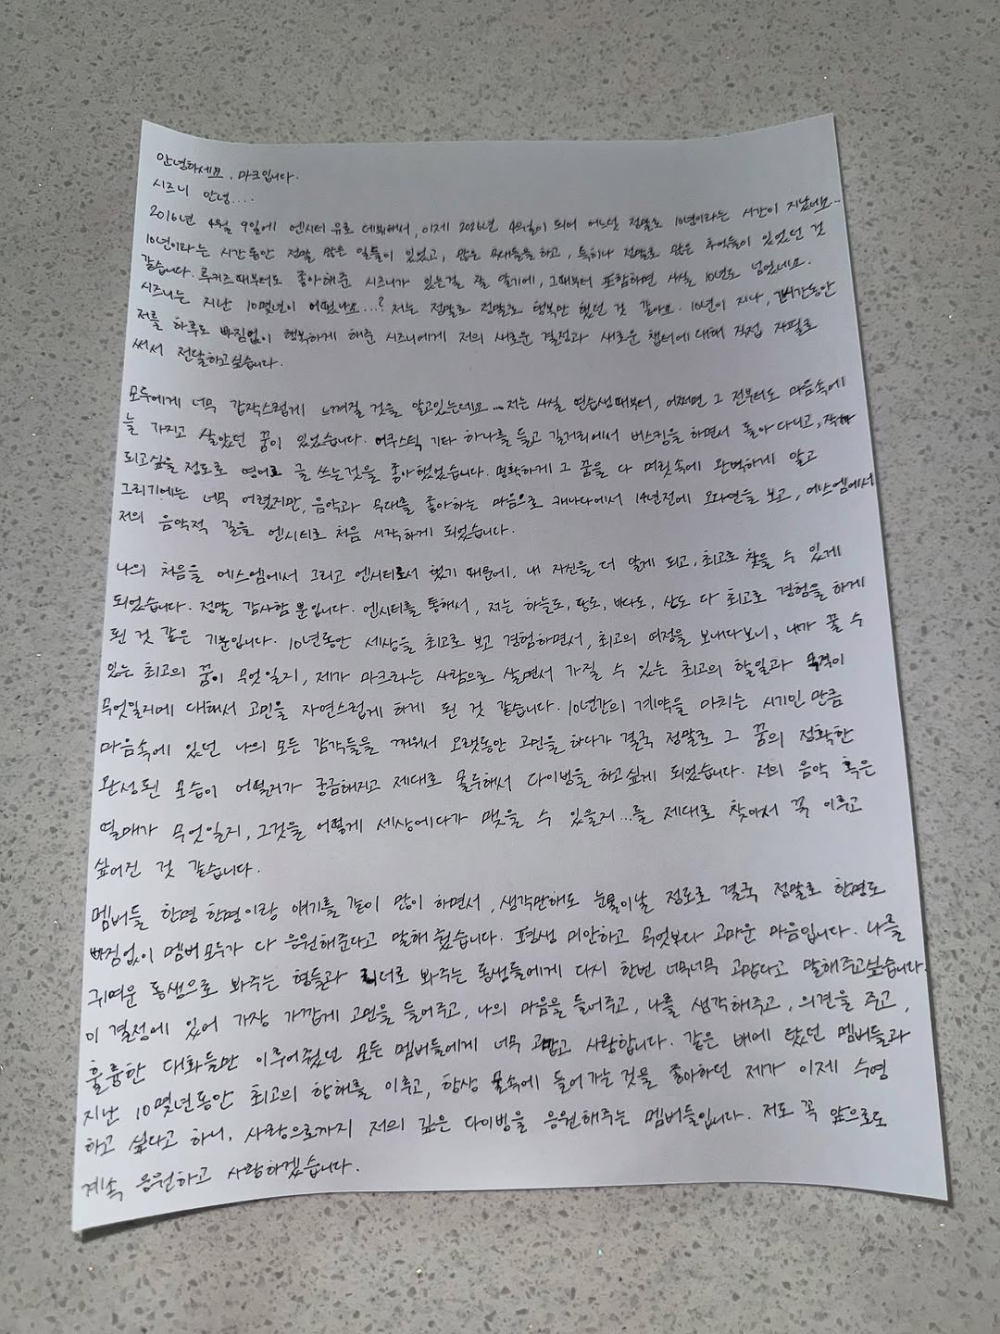 안녕하세요. 마크입니다.
시즈니 안녕....
2016년 4월 9일에 엔시티 유로 데뷔해서, 이제 2026년 4월이 되어 어느덧 정말로 10년이라는 시간이 지났네요..
10년이라는 시간동안 정말 많은 일들이 있었고, 많은 무대들을 하고, 특히나 정말로 많은 추억들이 있었던 것
같습니다. 루키즈때부터도 좋아해준 시즈니가 있는걸 잘 알기에, 그때부터 포함하면 사실 10년도 넘었네요.
시즈니는 지난 10몇년이 어떴나요...? 저는 정말로 정말로 행복만 했던 것 같아요. 10년이 지나, 그 시간동안
저를 하루도 빠짐없이 행복하게 해준 시즈니에게 저의 새로운 결정과 새로운 챕터에 대해 직접 자필로
써서 전달하고싶습니다.
모두에게 너무 갑작스럽게 느껴질 것을 알고있는데요... 저는 사실 연습생때부터, 어쩌면 그 전부터도 마음속에
늘 가지고 살았던 꿈이 있었습니다. 어쿠스틱 기타 하나를 들고 길거리에서 버스킹을 하면서 돌아다니고,
되고싶을 정도로 영어로 글 쓰는것을 좋아했었습니다. 명확하게 그 꿈을 다 머릿속에 완벽하게 알고
그리기에는 너무 어렸지만, 음악과 무대를 좋아하는 마음으로 캐나다에서 14년전에 오디션을 보고, 에스엠에서
저의 음악적 길을 엔시티로 처음 시작하게 되었습니다.
나의 처음을 에스엠에서 그리고 엔시티로서 했기 때문에, 내 자신을 더 알게 되고, 최고로 찾을 수 있게
되었습니다. 정말 감사함 뿐입니다. 엔시티를 통해서, 저는 하늘도, 땅도, 바다도, 산도 다 최고로 경험을 하게
된 것 같은 기분입니다. 10년동안 세상을 최고로 보고 경험하면서, 최고의 여정을 보내다보니, 내가 꿀 수
있는 최고의 꿈이 무엇일지, 제가 마크라는 사람으로 살면서 가질 수 있는 최고의 할일과 목적이
무엇일지에 대해서 고민을 자연스럽게 하게 된 것 같습니다. 10년간의 계약을 마치는 시기인 만큼
마음속에 있던 나의 모든 감각들을 깨워서 오랫동안 고민을 하다가 결국 정말로 그 꿈의 정확한
완성된 모습이 어떨지가 궁금해지고 제대로 몰두해서 다이빙을 하고싶게 되었습니다. 저의 음악 혹은
열매가 무엇일지, 그것을 어떻게 세상에다가 맺을 수 있을지...를 제대로 찾아서 꼭 이루고
싶어진 것 같습니다.
멤버들 한명 한명이랑 얘기를 같이 많이 하면서, 생각만해도 눈물이날 정도로 결국 정말로 한명도
빠짐없이 멤버모두가 다 응원해준다고 말해줬습니다. 평생 미안하고 무엇보다 고마운 마음입니다. 나를
귀여운 동생으로 봐주는 형들과 리더로 봐주는 동생들에게 다시 한번 너무너무 고맙다고 말해주고싶습니다.
이 결정에 있어 가장 가깝게 고민을 들어주고, 나의 마음을 들어주고, 나를 생각해주고, 의견을 주고,
훌륭한 대화들만 이루어줬던 모든 멤버들에게 너무 고맙고 사랑합니다. 같은 배에 탔던 멤버들과
지난 10몇년동안 최고의 항해를 이루고, 항상 물속에 들어가는 것을 좋아하던 제가 이제 수영
하고 싶다고 하니, 사랑으로까지 저의 깊은 다이빙을 응원해주는 멤버들입니다. 저도 꼭 앞으로도
계속 응원하고 사랑하겠습니다.